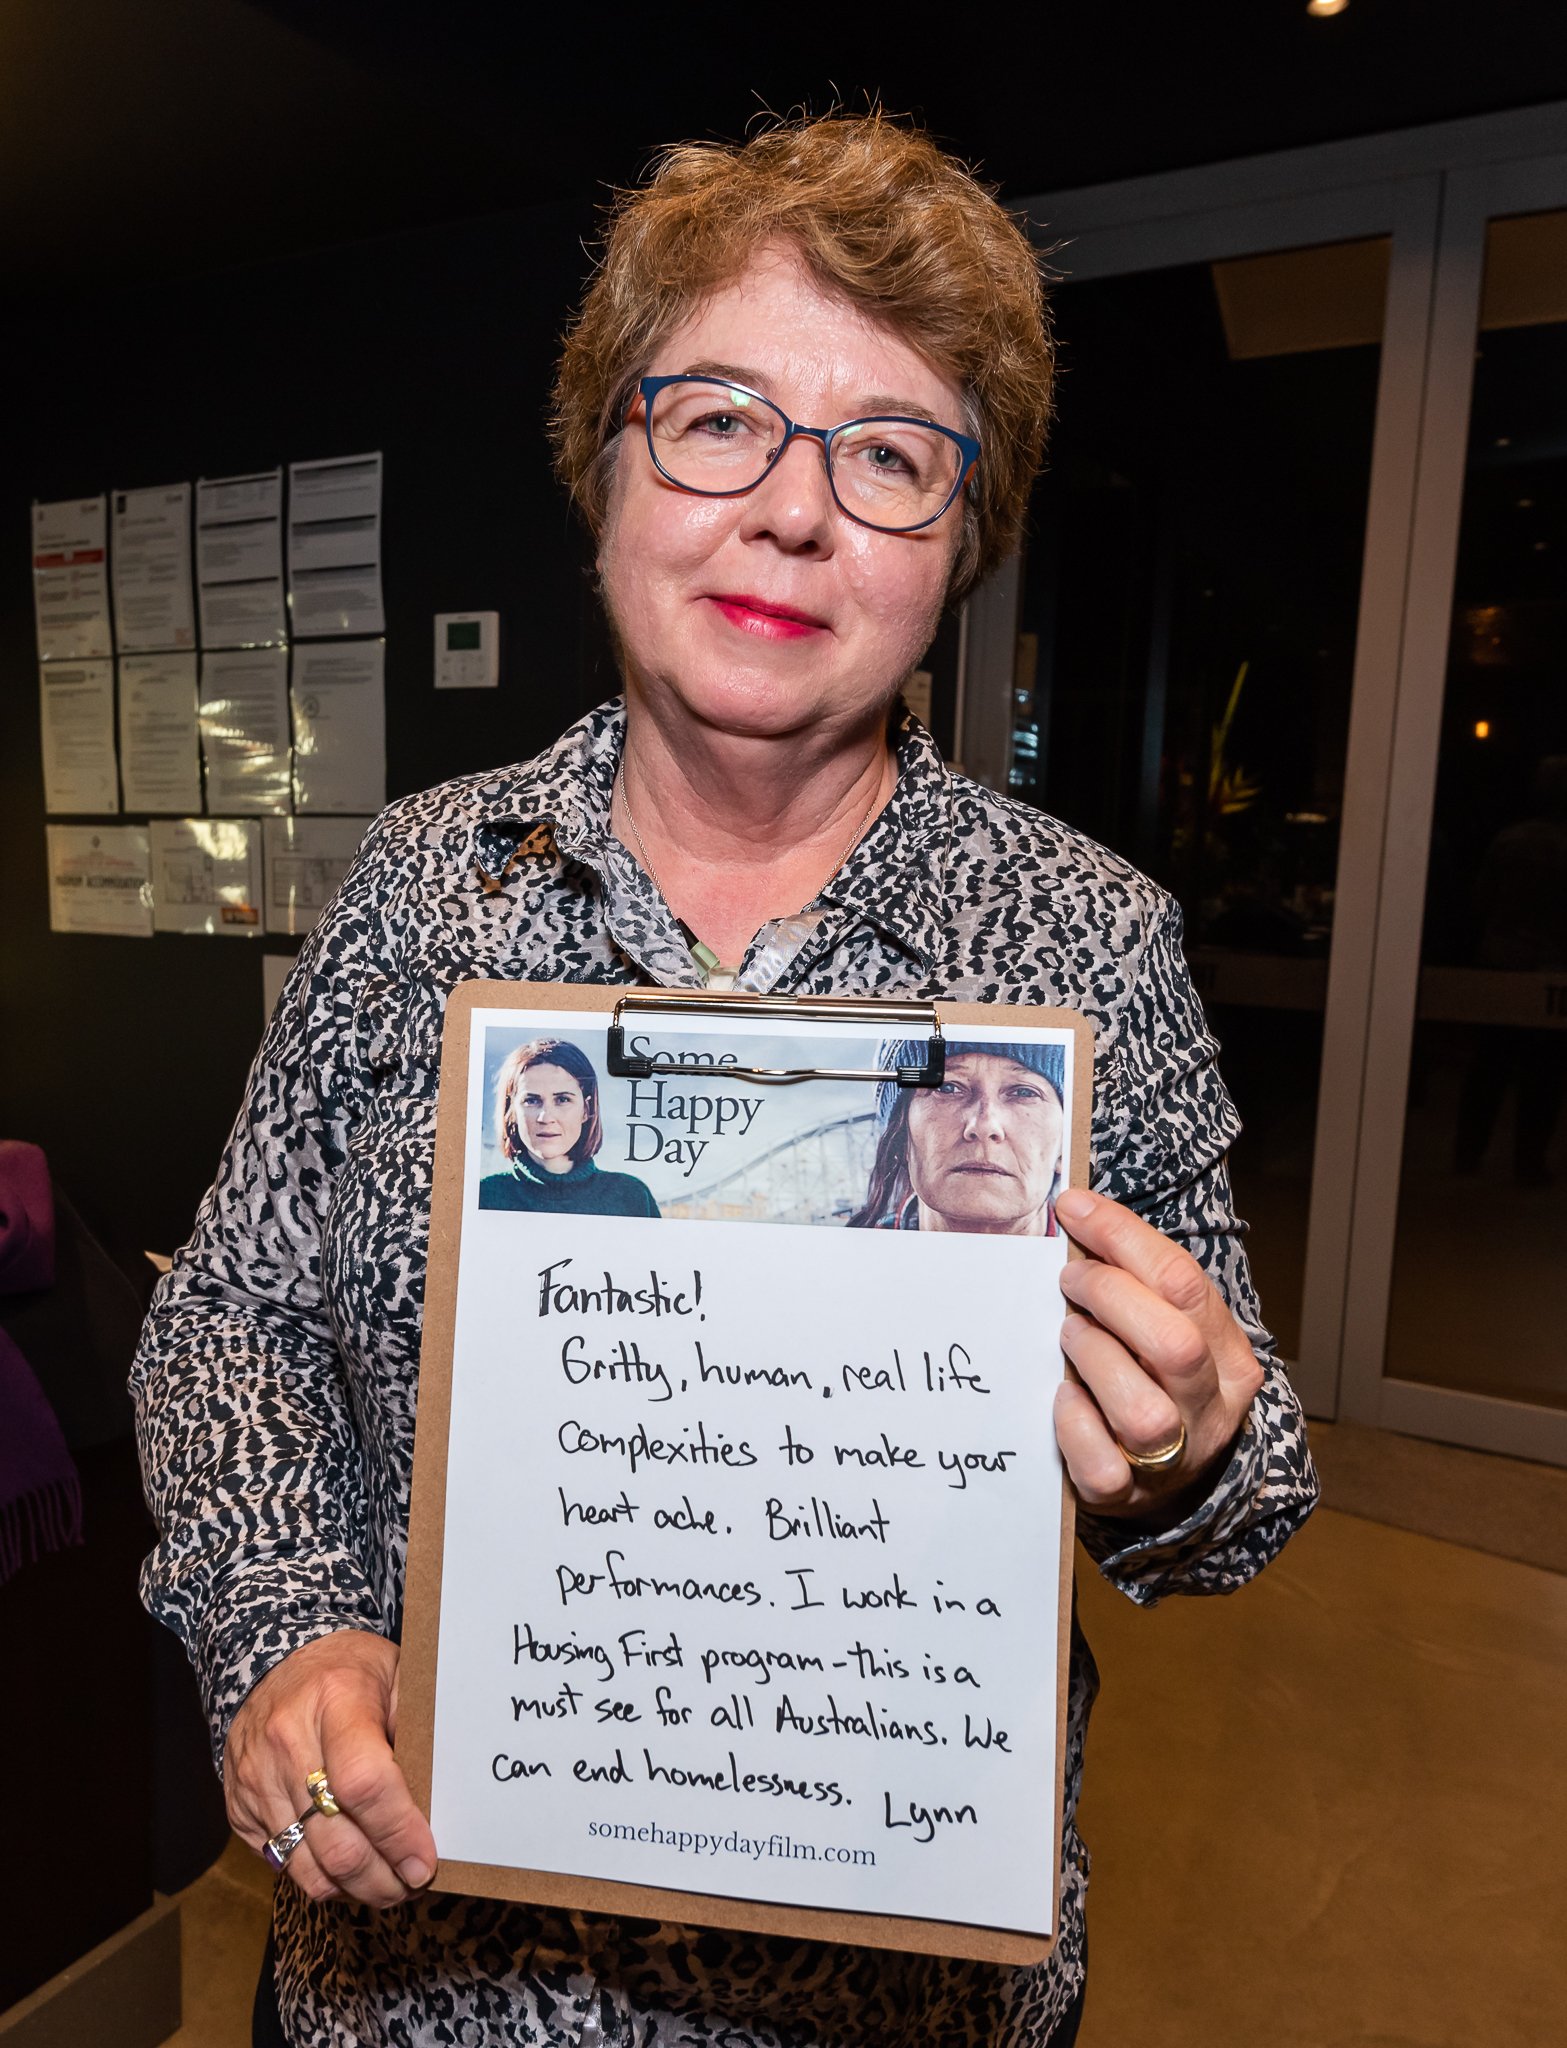 Some
Happy
Day
Fantastic!
Gritty, human, real life
complexities to make your
heart ache. Brilliant
performances. I work in a
Housing First program - this is a
must see for all Australians. We
can end homelessness. Lynn
somehappydayfilm.com
MAXIMUM ACCOMMODATION